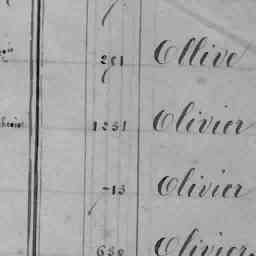 281 Ollive
1251 Olivier
-13 Olivier
658 Olivier